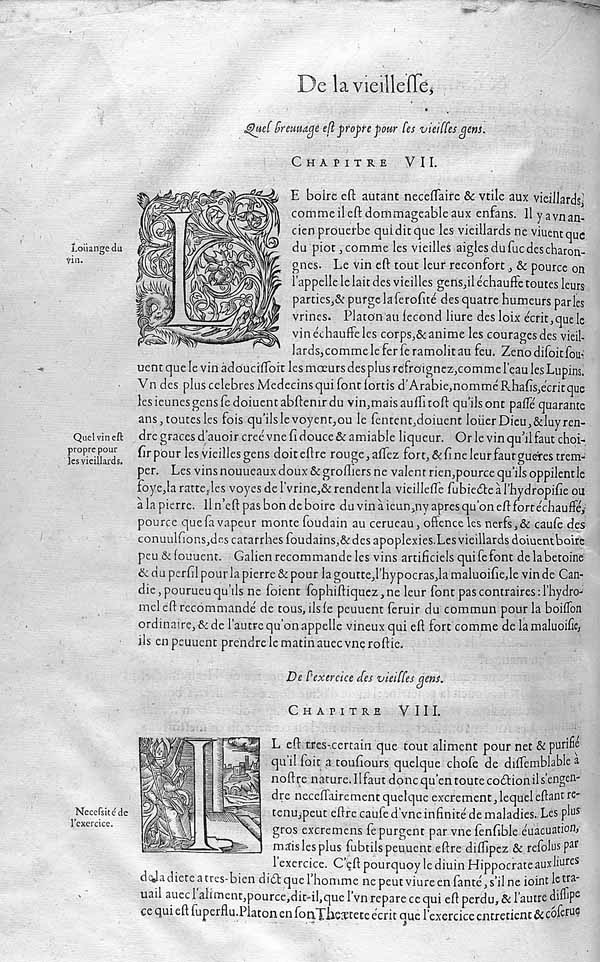 De la vieilleſſe,
Quel breuuage eſt propre pour les vieilles gens.
CHAPITRE VII.
LE boire eſt autant neceſſaire & vtile aux vieillards,
comme il eſt dommageable aux enfans. Il y a vn an-
cien prouerbe qui dit que les vieillards ne viuent que
du piot, comme les vieilles aigles du ſuc des charon-
gnes. Le vin eſt tout leur reconfort, & pource on
l'appelle le lait des vieilles gens, il échauffe toutes leurs
parties, & purge la ſeroſité des quatre humeurs par les
vrines. Platon au ſecond liure des loix écrit, que le
vin échauffe les corps, & anime les courages des vieil-
lards, comme le fer ſe ramolit au feu. Zeno diſoit ſou-
uent que le vin adouciſſoit les mœurs des plus refroignez, comme l'eau les Lupins.
Vn des plus celebres Medecins qui ſont ſortis d'Arabie, nommé Rhaſis, écrit que
les ieunes gens ſe doiuent abſtenir du vin, mais auſſi toſt qu'ils ont paſſé quarante
ans, toutes les fois qu'ils le voyent, ou le ſentent, doiuent loüer Dieu, & luy ren-
dre graces d'auoir creé vne ſi douce & amiable liqueur. Or le vin qu'il faut choi-
ſir pour les vieilles gens doit eſtre rouge, aſſez fort, & ſi ne leur faut gueres trem-
per. Les vins nouueaux doux & groſſiers ne valent rien, pource qu'ils oppilent le
foye, la ratte, les voyes de l'vrine, & rendent la vieilleſſe ſubiecte à l'hydropiſie ou
à la pierre. Il n'eſt pas bon de boire du vin à ieun, ny apres qu'on eſt fort échauffé,
pource que ſa vapeur monte ſoudain au cerueau, offence les nerfs, & cauſe des
conuulſions, des catarrhes ſoudains, & des apoplexies. Les vieillards doiuent boire
peu & ſouuent. Galien recommande les vins artificiels qui ſe font de la betoine
& du perſil pour la pierre & pour la goutte, l'hypocras, la maluoiſie, le vin de Can-
die, pourueu qu'ils ne ſoient ſophiſtiquez, ne leur ſont pas contraires: l'hydro-
mel eſt recommandé de tous, ils ſe peuuent ſeruir du commun pour la boiſſon
ordinaire, & de l'autre qu'on appelle vineux qui eſt fort comme de la maluoiſie,
ils en peuuent prendre le matin auec vne roſtie.
Loüange du
vin.
Quel vin eſt
propre pour
les vieillards.
De l'exercice des vieilles gens.
CHAPITRE VIII.
IL eſt tres-certain que tout aliment pour net & purifié
qu'il ſoit a touſiours quelque choſe de diſſemblable à
noſtre nature. Il faut donc qu'en toute coction il s'engen-
dre neceſſairement quelque excrement, lequel eſtant re-
tenu, peut eſtre cauſe d'vne infinité de maladies. Les plus
gros excremens ſe purgent par vne ſenſible éuacuation,
mais les plus ſubtils peuuent eſtre diſſipez & reſolus par
l'exercice. C'eſt pourquoy le diuin Hippocrate aux liures
de la diete a tres-bien dict que l'homme ne peut viure en ſanté, s'il ne ioint le tra-
uail auec l'aliment, pource, dit-il, que l'vn repare ce qui eſt perdu, & l'autre diſſipe
ce qui eſt ſuperflu. Platon en ſon Theætete écrit que l'exercice entretient & cõſerue
Neceſsité de
l'exercice.